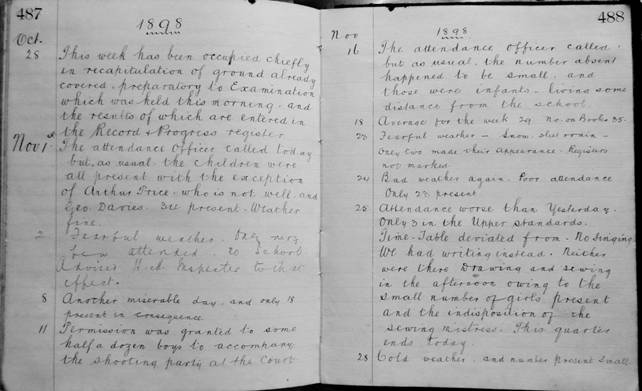 487
1898
Oct.
28 This week has been occupied chiefly
in recapitulation of ground already
covered, preparatory to Examination
which was held this morning, and
the results of which are entered in
the Record & Progress register
Nov 1st The attendance Officer called today
but, as usual, the children were
all present with the exception
of Arthur Price, who is not well, and
Geo. Davies. 34 present. Weather
fine.
2 Fearful weather. Only very
few attended. to School
Advised H.M. Inspector to that
effect.
8 Another miserable day, and only 18
present in consequence.
11 Permission was granted to some
half a dozen boys to accompany
the shooting party at the Court
488
Nov 1898
16 The attendance officer called,
but as usual, the number absent
happened to be small, and
those were infants - living some
distance from the school.
18 Average for the week 29. No. on Books 35.
23 Fearful weather - Snow, sleet & rain -
Only two made their appearance. Registers
not marked.
24 Bad weather again. Poor attendance
Only 23 present
25 Attendance worse than Yesterday.
Only 3 in the Upper Standards.
Time-Table deviated from. No Singing
We had writing instead. Neither
were there Drawing and sewing
in the afternoon owing to the
small number of girls present
and the indisposition of the
sewing mistress. This quarter
ends today.
28 Cold weather, and number present small.